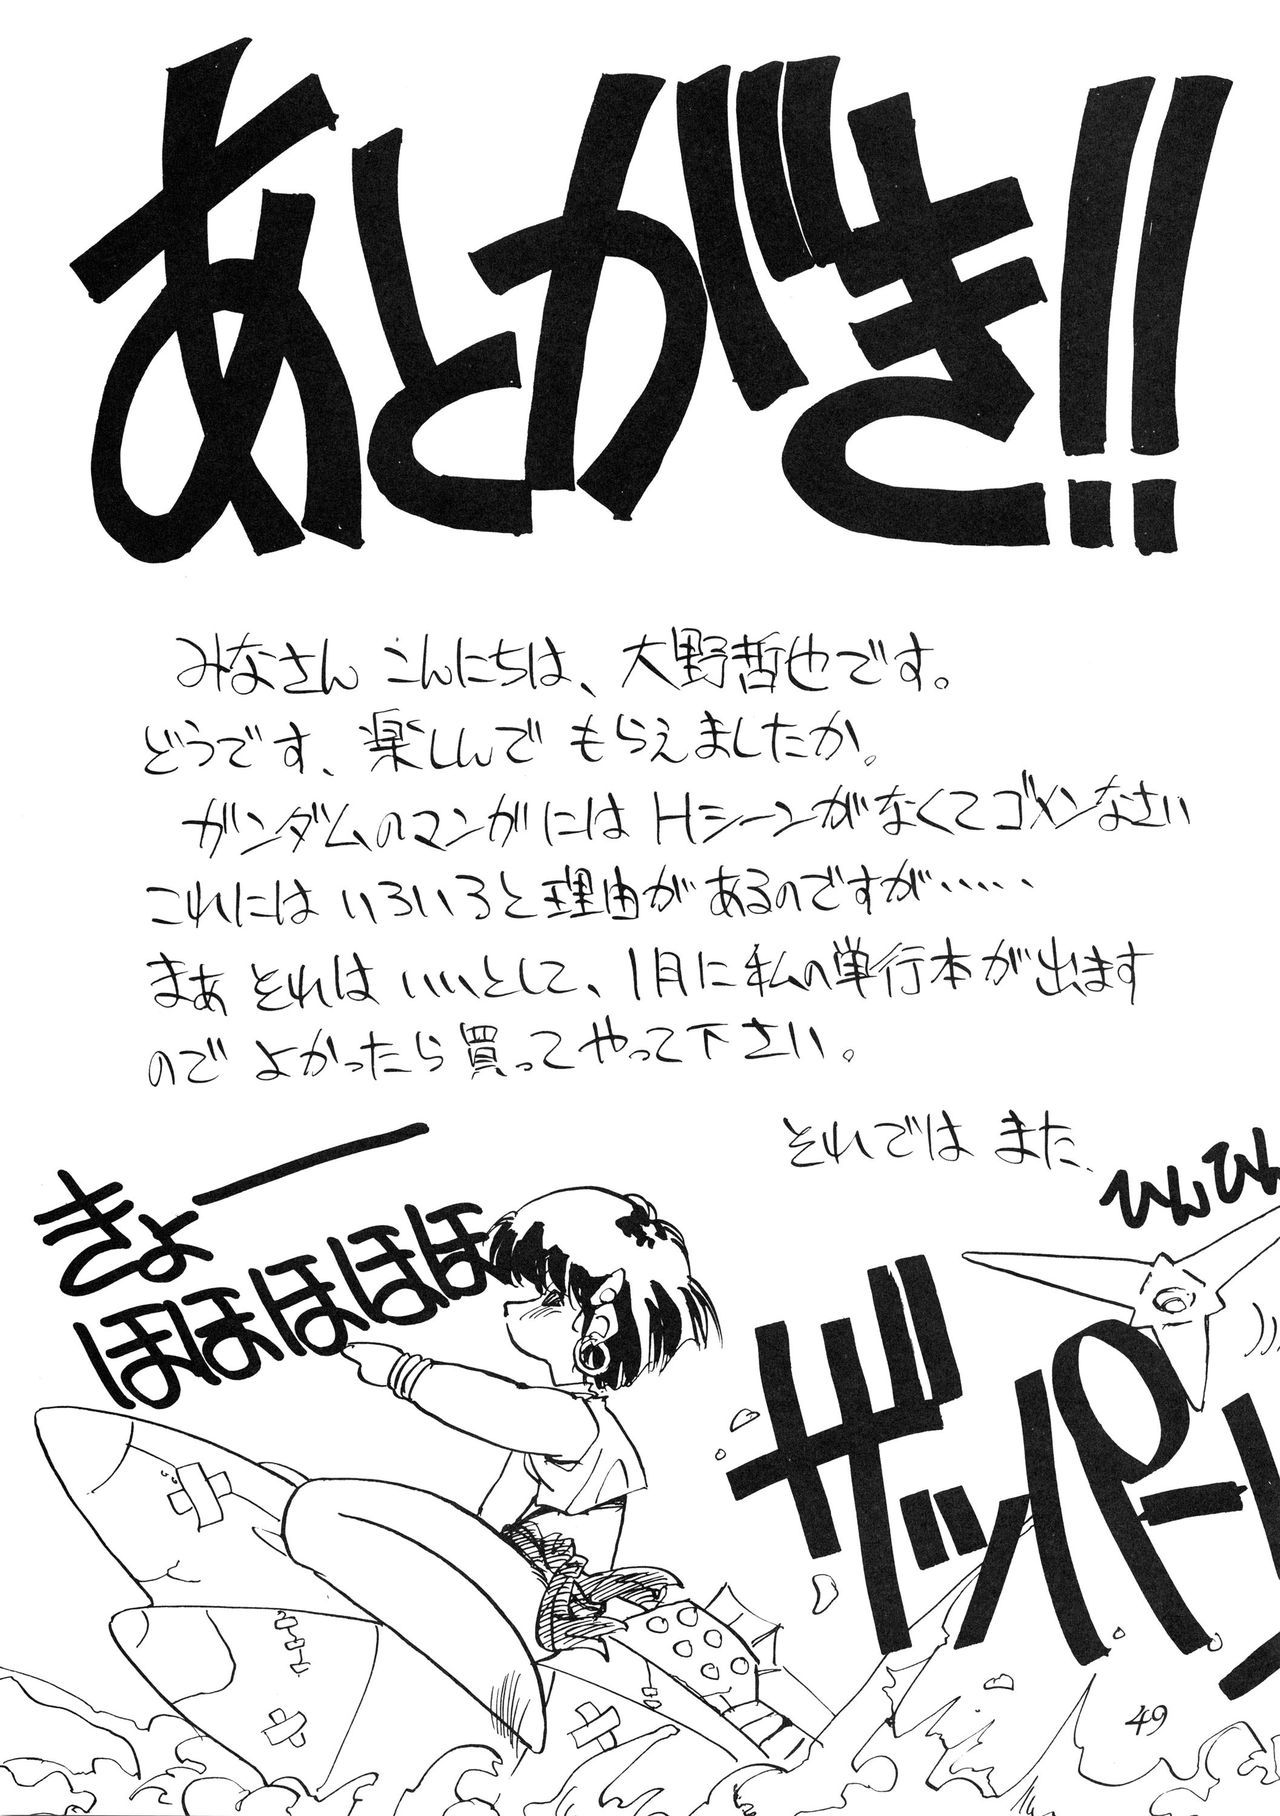 あとがき!!
みなさん こんにちは、大野哲也です。
どうです、楽しんで もらえましたか。
ガンダムのマンガには Hシーンがなくてゴメンなさい
これには いろいろと理由があるのですが・・・・・
まぁ それは いいとして、1月に私の単行本が出ます
ので よかったら買ってやって下さい。
それでは また.
きょー
ほほほほほ
ひんひん
ザッパー
49